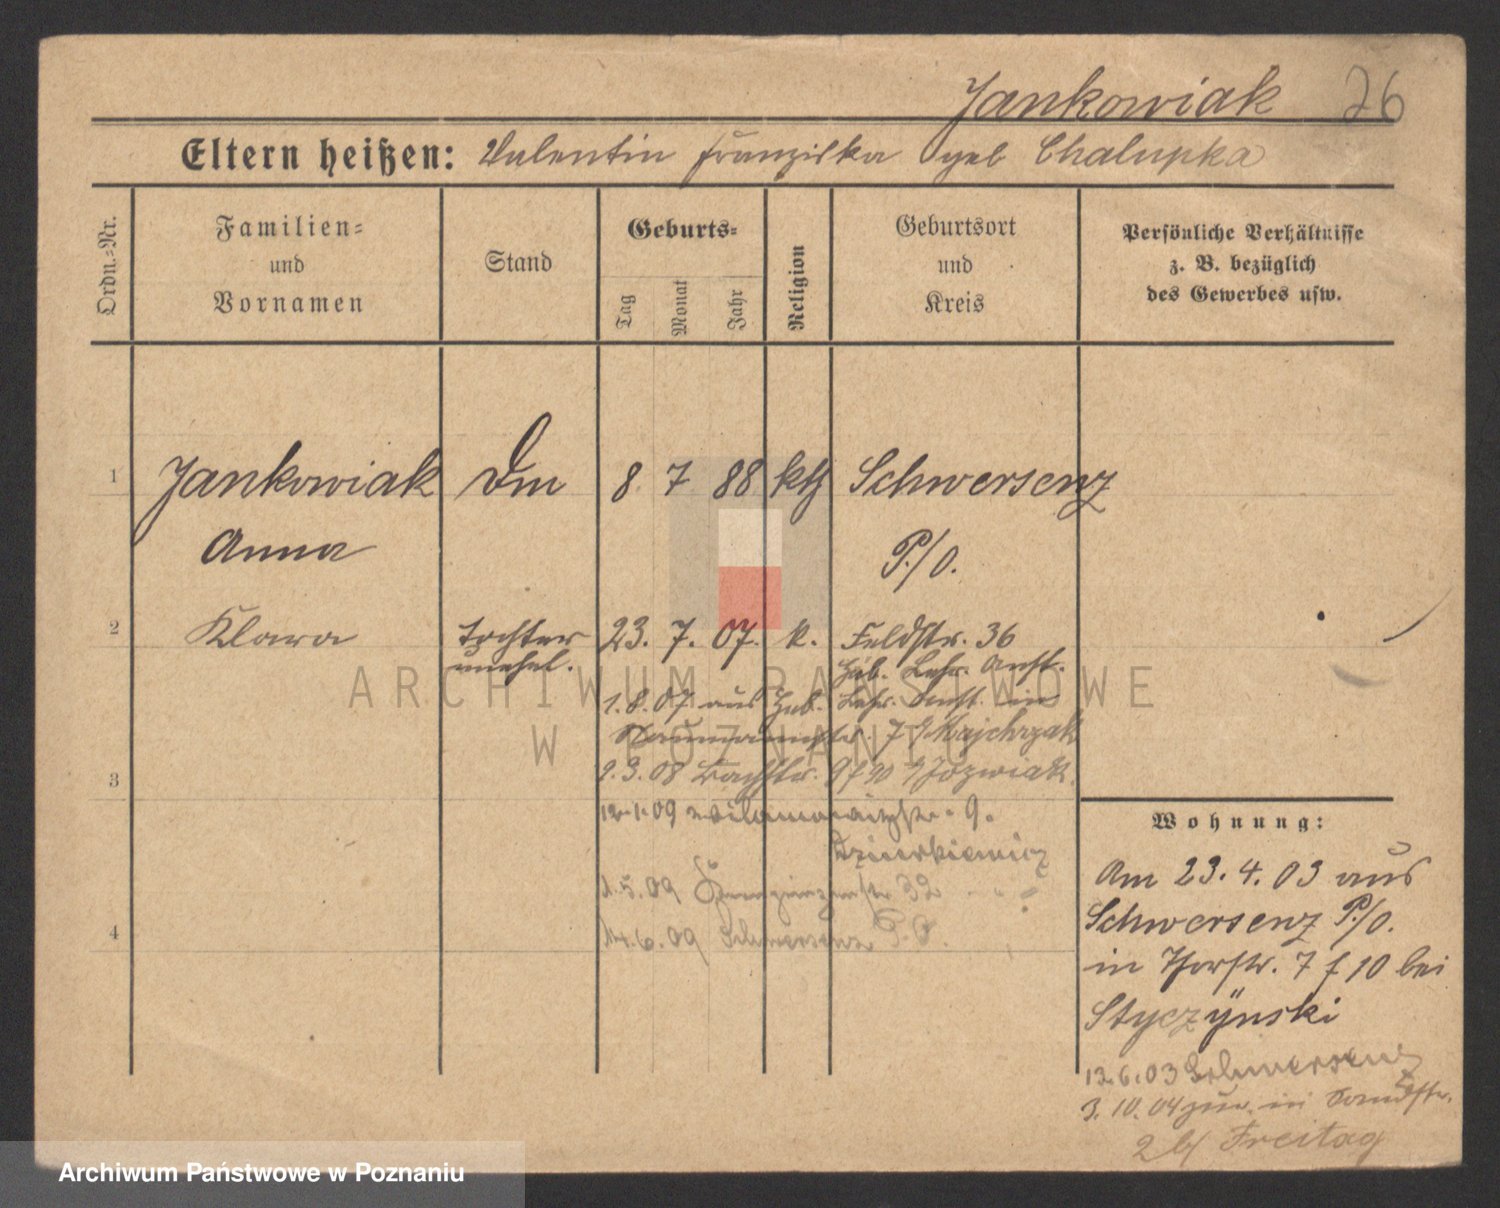 Jankowiak 26
Eltern heißen: Valentin Franziska geb Chalupka
Ordn.=Nr.
Familien=
und
Vornamen
Stand
Geburts=
Tag
Monat
Jahr
Religion
Geburtsort
und
Kreis
Persönliche Verhältnisse
z. B. bezüglich
des Gewerbes usw.
1 Jankowiak Dm 8 7 88 kth Schwersenz
Anna P./O.
2 Klara Tochter 23. 7. 07. k. Feldstr. 36
unehel. Heb. Lehr. Anst.
1.8.07 aus Heb. Lehr. Anst. in
Naumannstr. 7 b/ Majchrzak
3 2.3.08 Bachstr. 9 f 90 b/ Jozwiak.
12.1.09 9.
1.5.09 32
4 14.6.09 Schwersenz P.O.
Wohnung:
Am 23.4.03 aus
Schwersenz P./O.
in Thorstr. 7 f 10 bei
Styczÿnski
13.6.03 Schwersenz
3.10.04 zur. in Sandstr.
2 b/ Freitag
ARCHIWUM PAŃSTWOWE
W POZNANIU
Archiwum Państwowe w Poznaniu